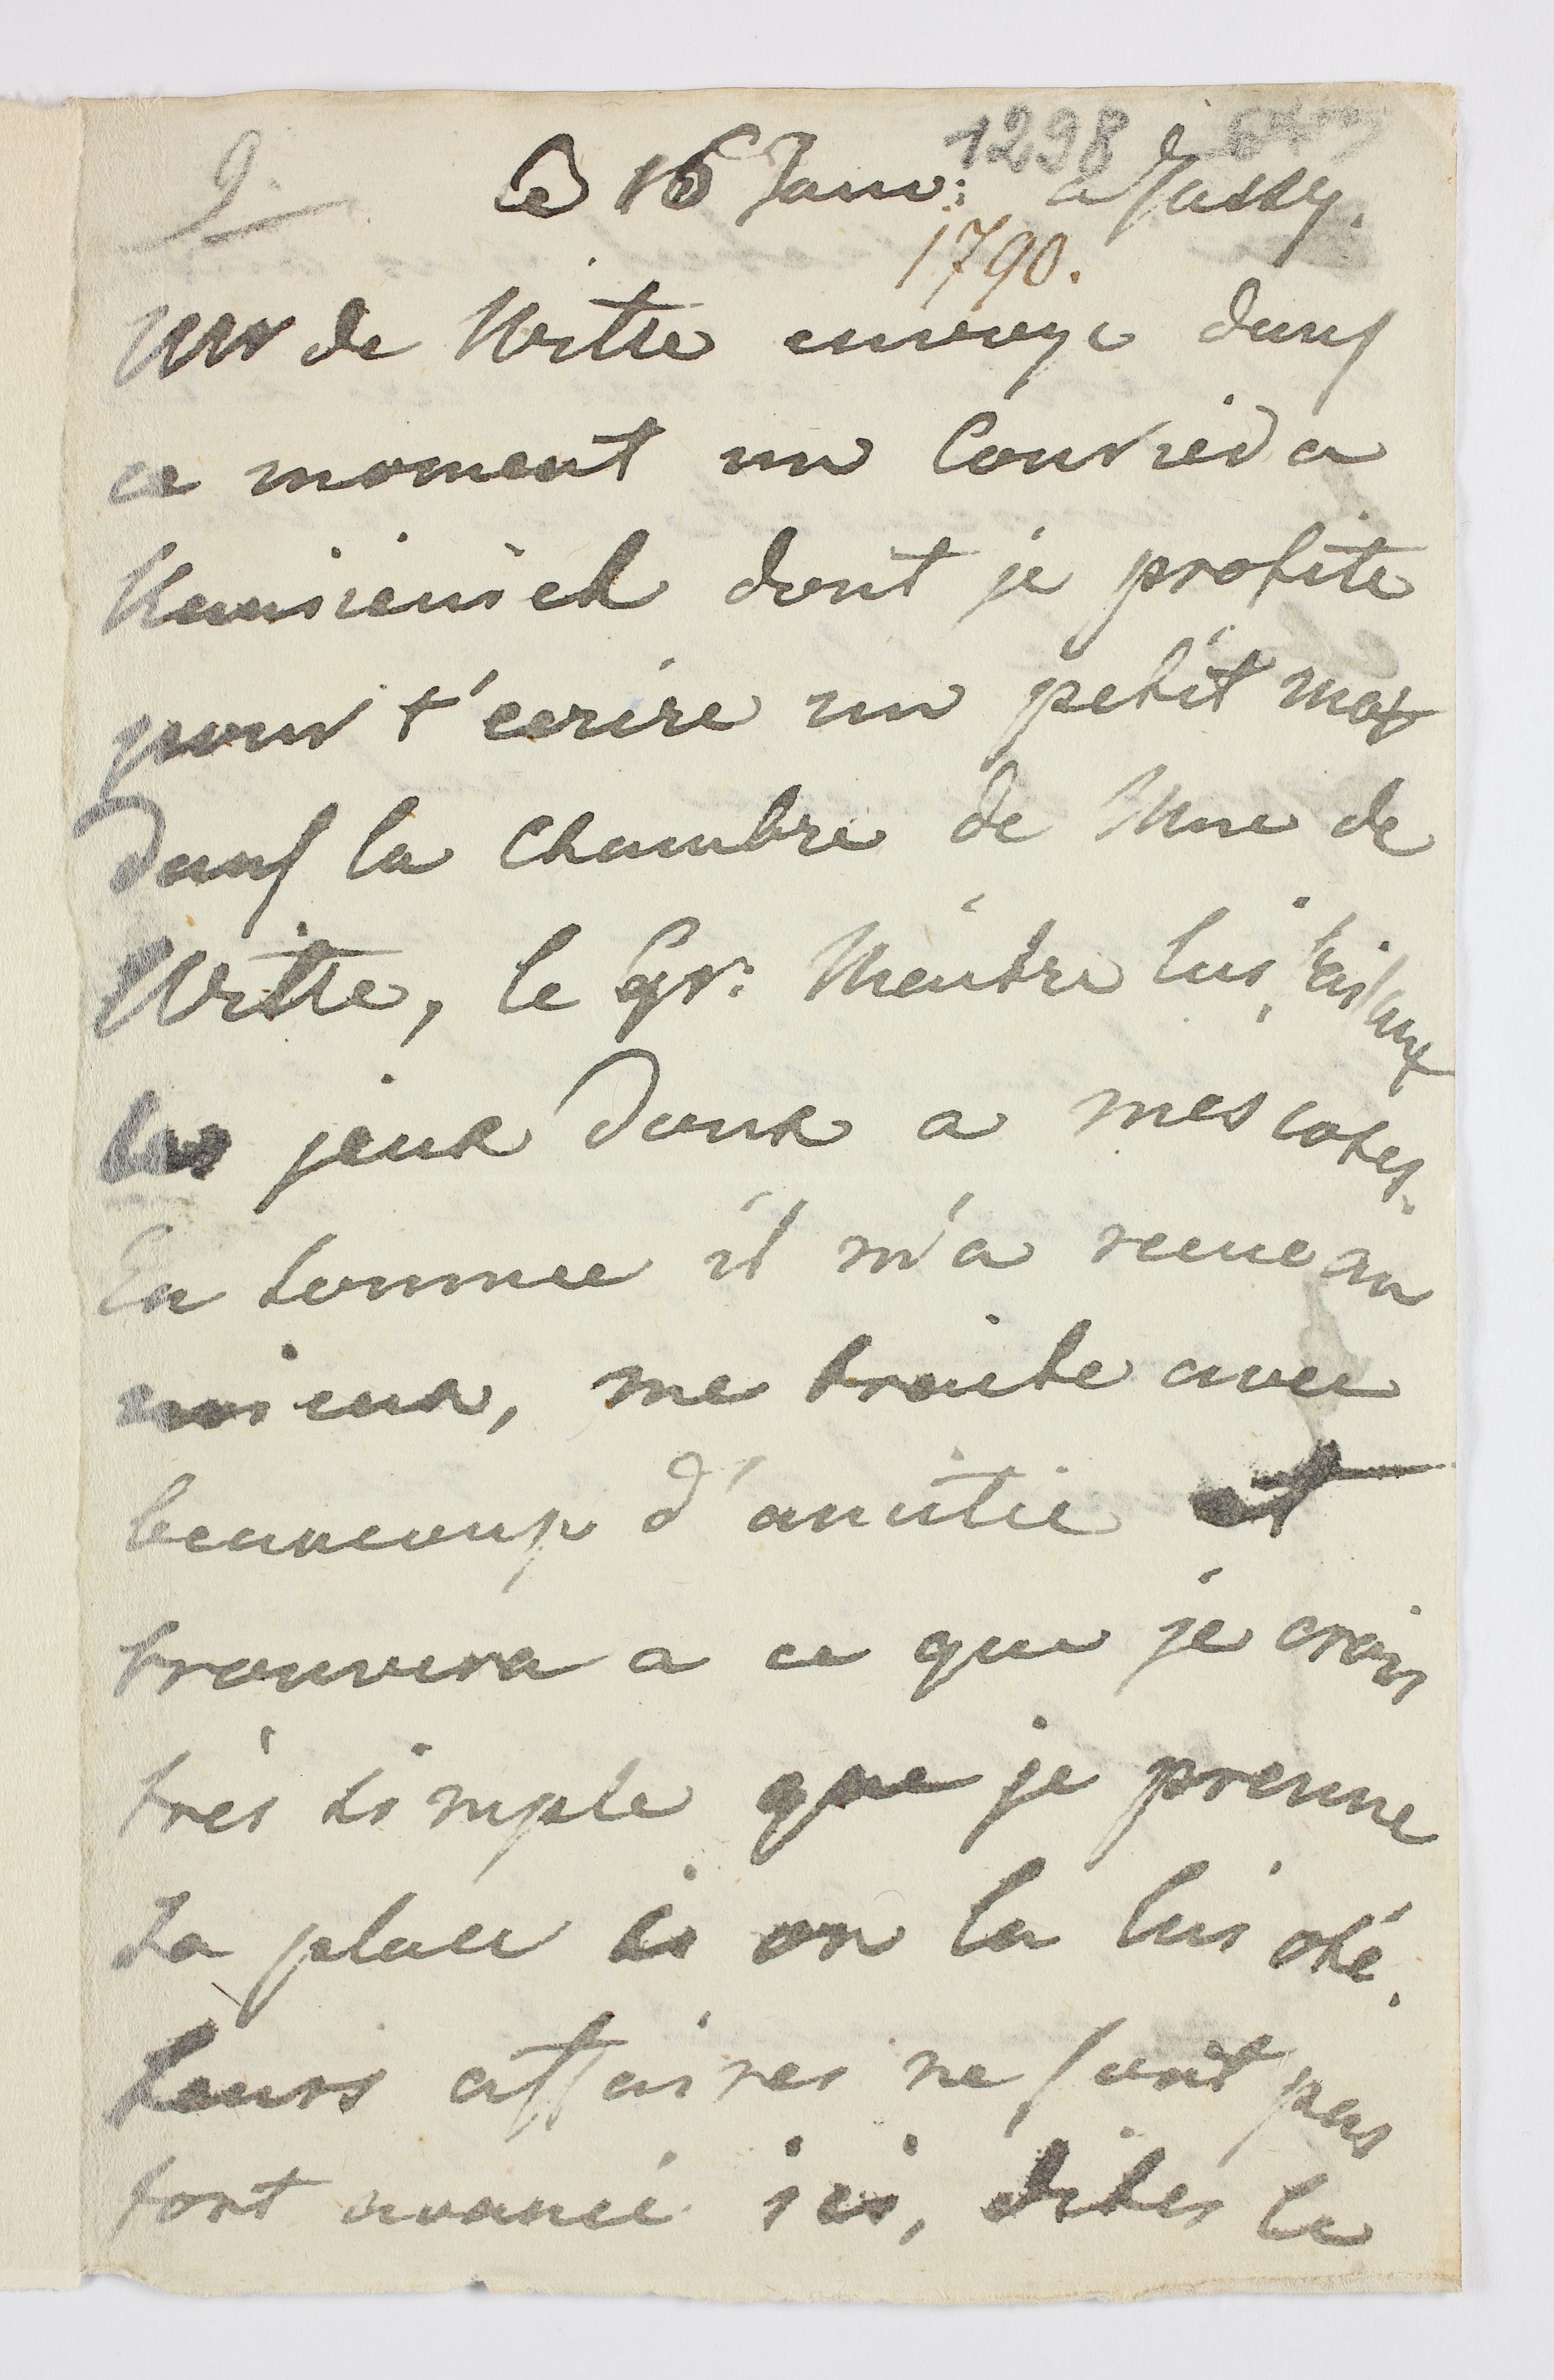 9. 1298
Le 16 Janv: a Jassy.
1790.
Mr de Witte envoye dans
ce moment un Courier a
dont je profite
pour t'ecrire un petit mot
dans la Chambre de Mme de
Witte, le Gr: lui fais aux
les jeux doux a mes cotes.
En somme il m'a recue au
mieux, me traite avec
beaucoup d'amitie et
trouvera a ce que je crois
très simple que je prenne
sa place si on la lui oté.
Leurs affaires ne sont pas
fort avancé ici, dites le